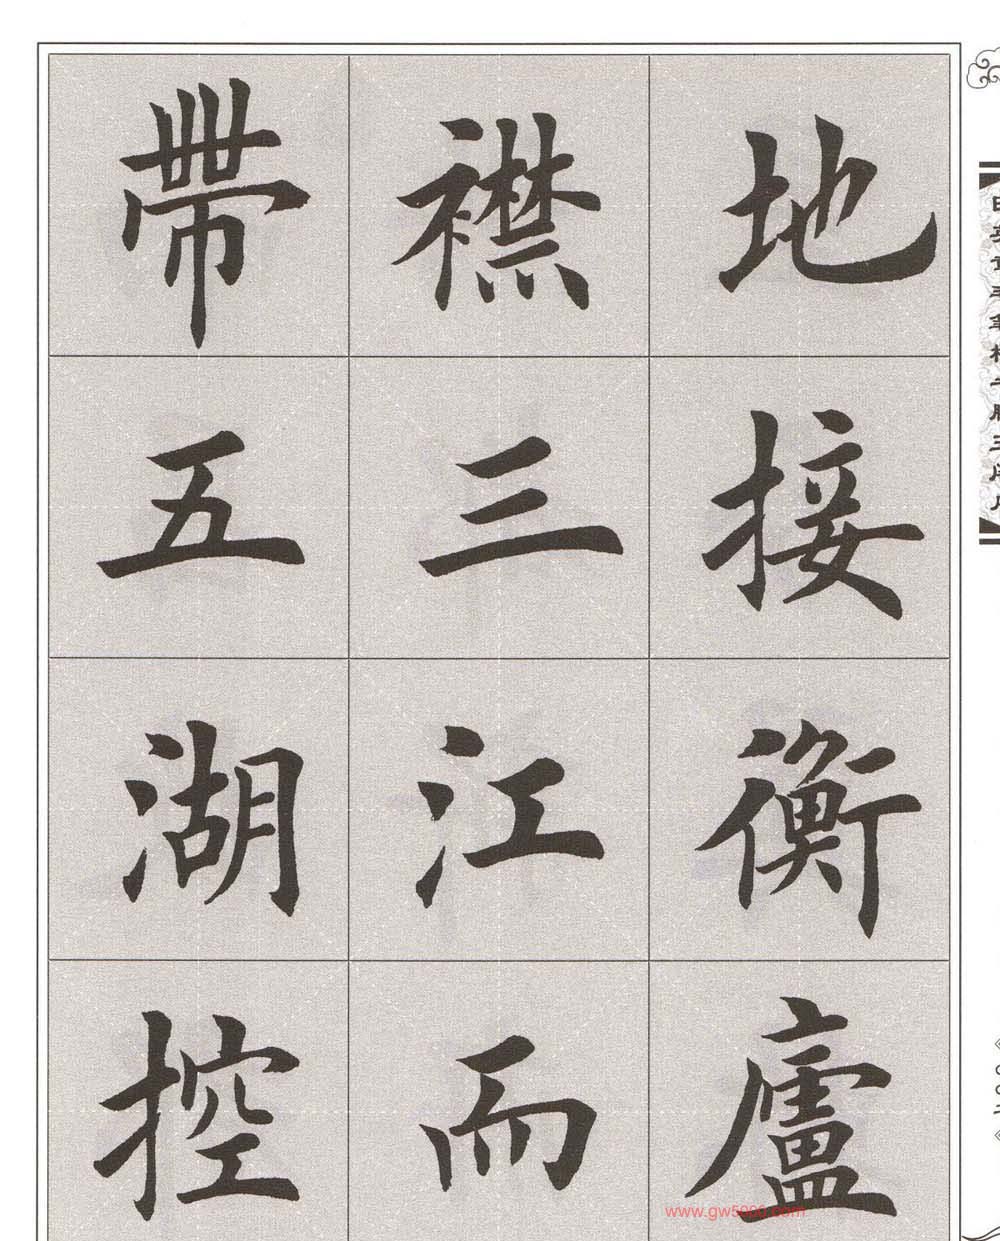 地接衡廬
襟三江而
帶五湖控
www.gw5000.com